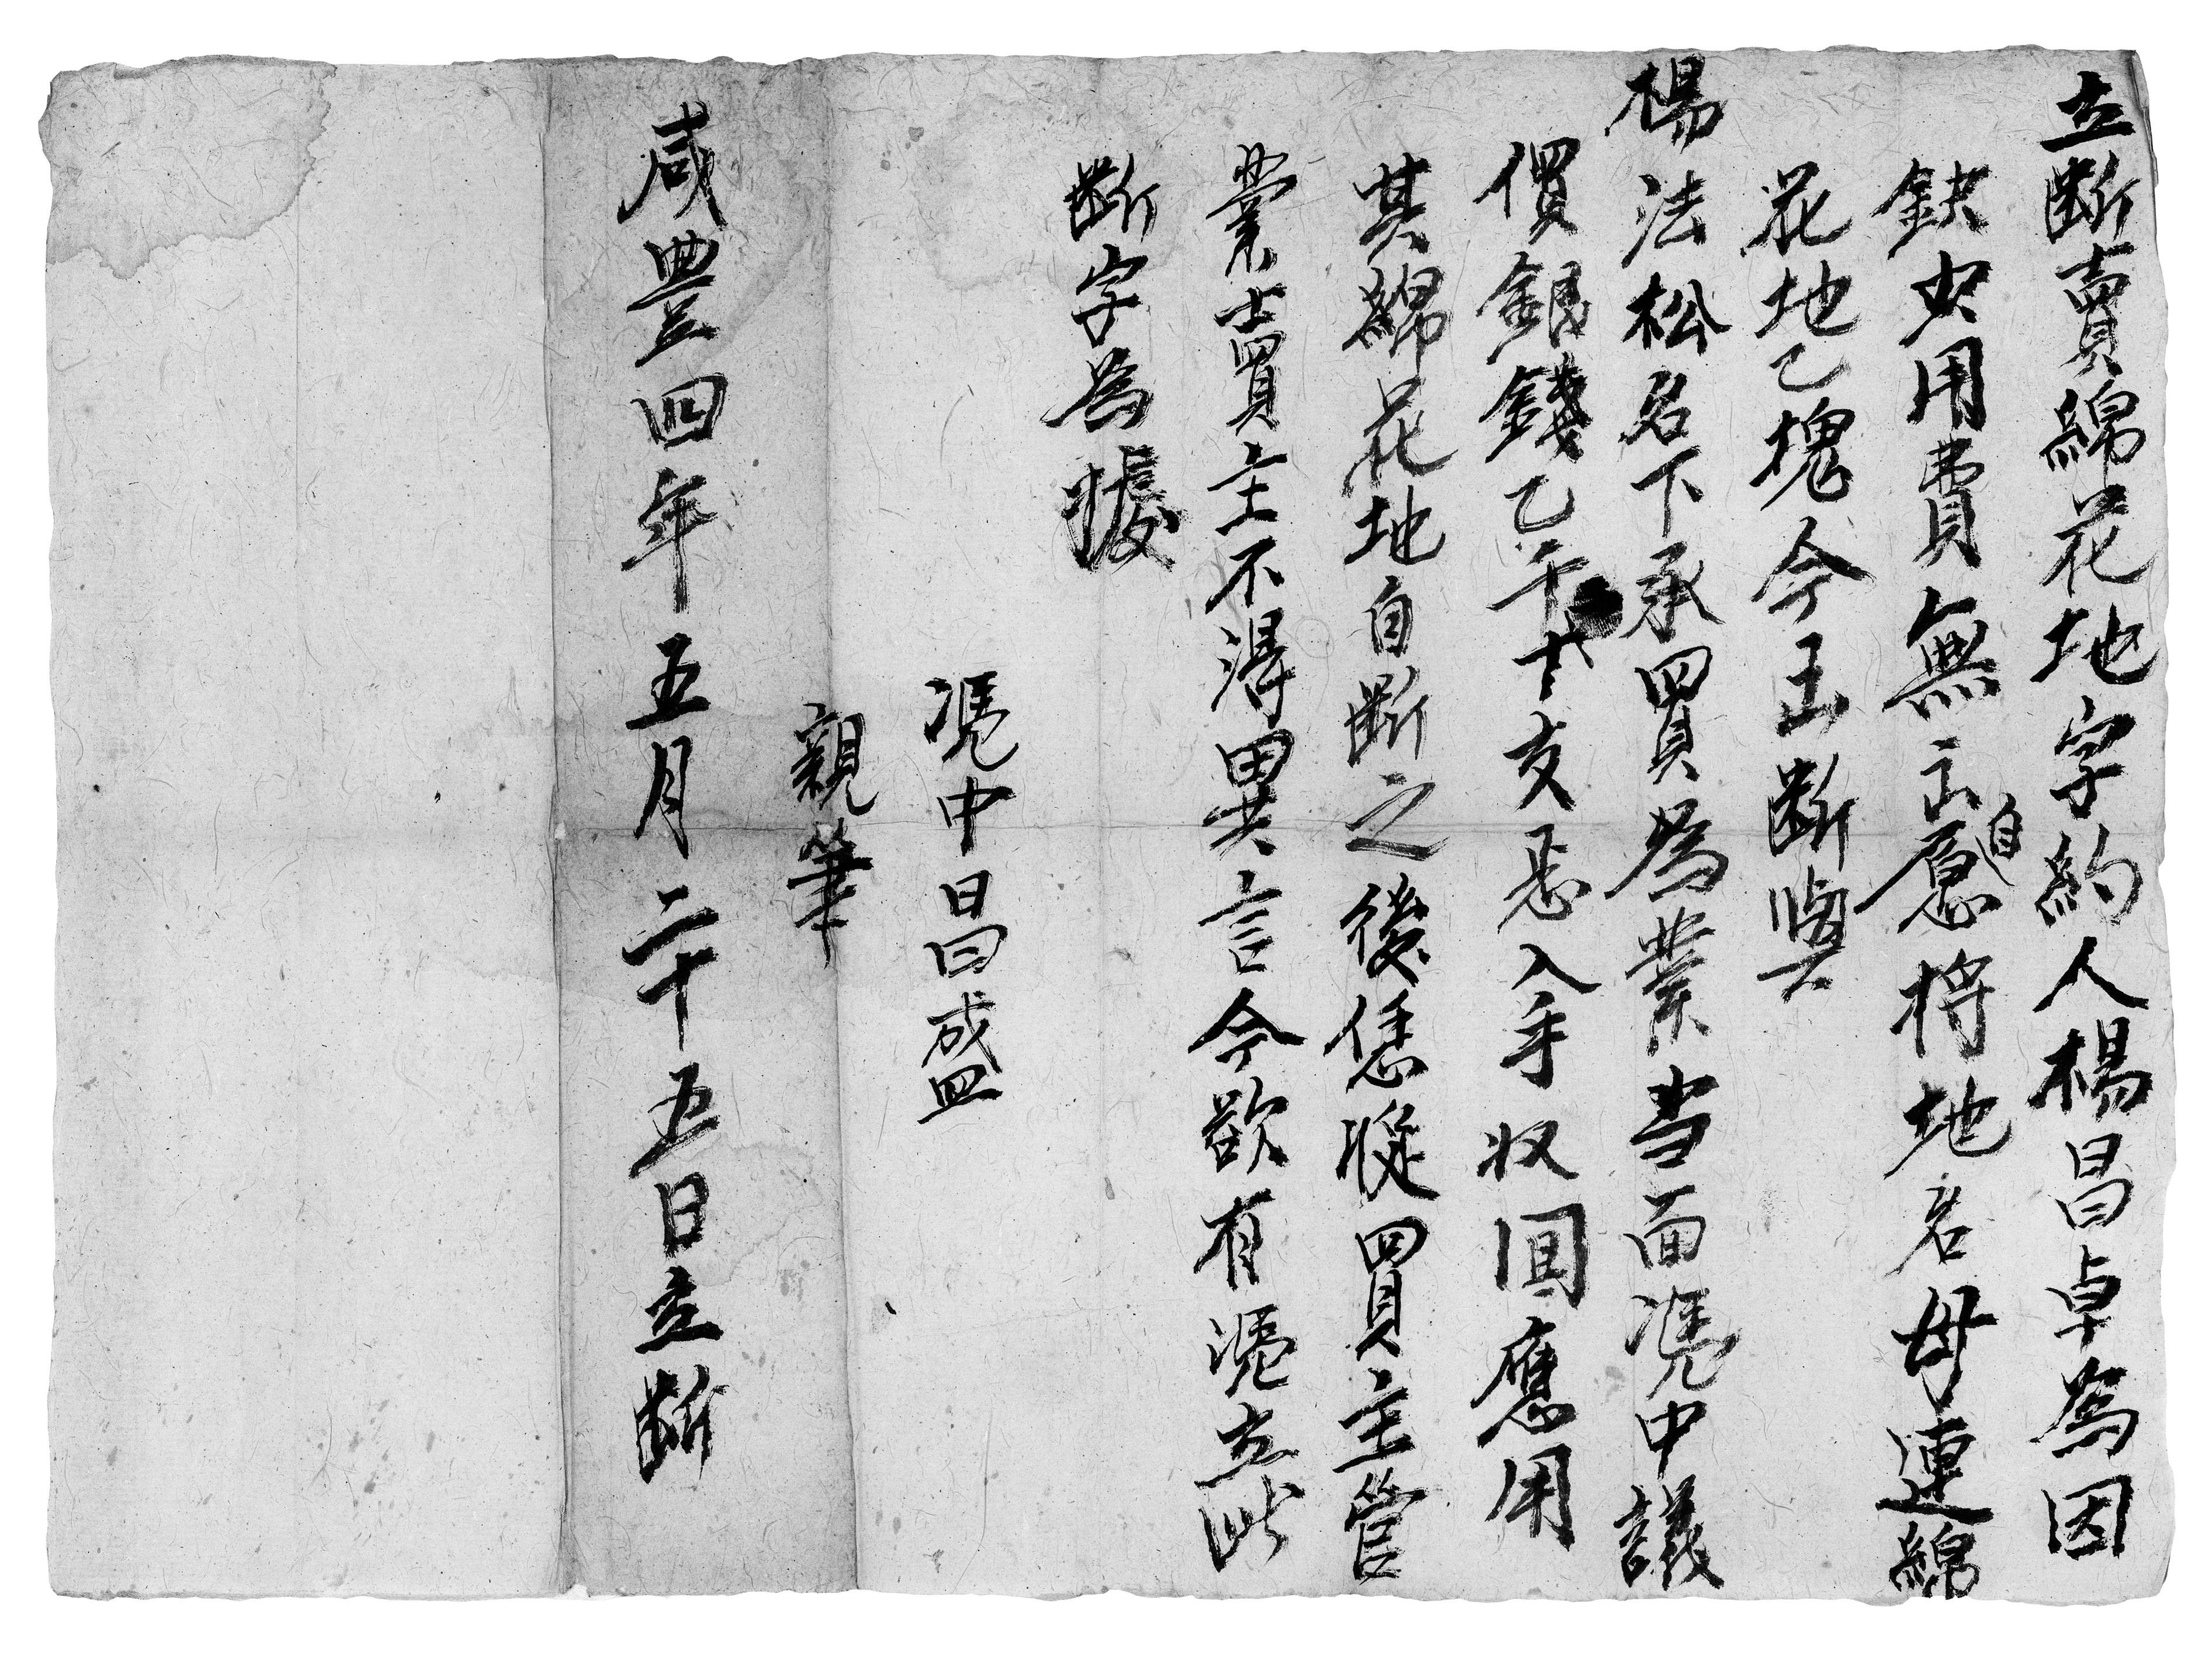 立斷賣綿花地字約人楊昌卓為因
缺少用費無出自愿將地名毋連綿
花地乙塊今出斷與
楊法松名下承買為業当面慿中議
價銀錢乙千 支悉入手收回應用
其綿花地自斷之後恁從買主管
業賣主不得異言今欲有慿立此
斷字為據
慿中昌盛
親筆
咸豐四年五月二十五日立斷